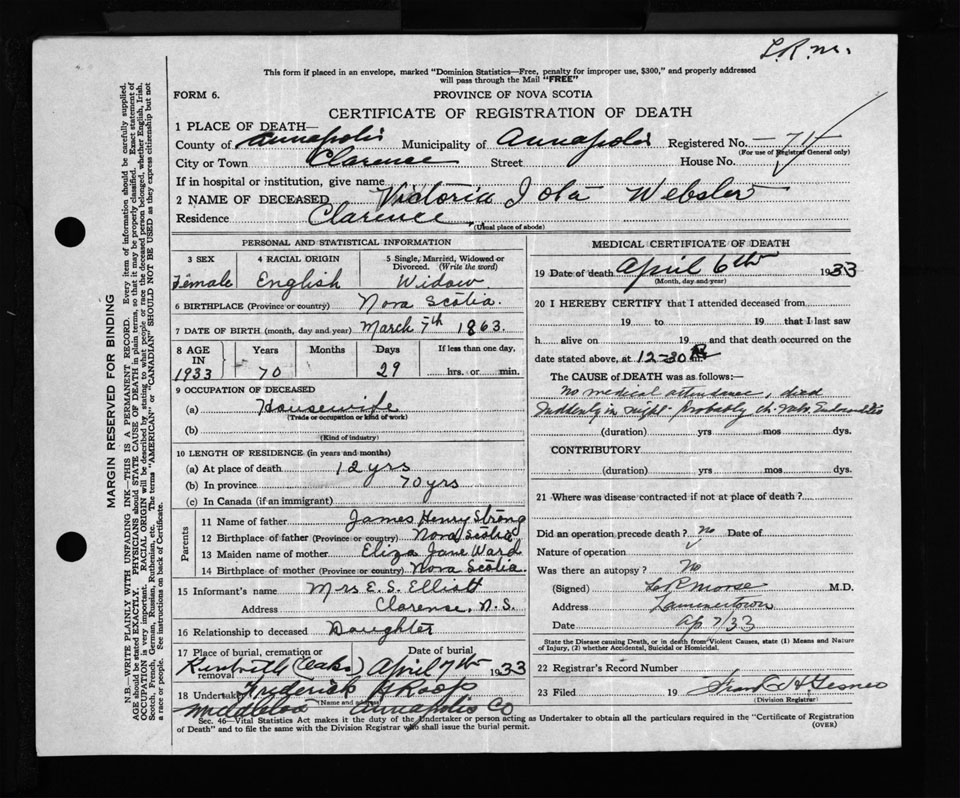 L.R.M.
This form if placed in an envelope, marked "Dominion Statistics—Free, penalty for improper use, $300," and properly addressed
will pass through the Mail "FREE"
FORM 6.
PROVINCE OF NOVA SCOTIA
CERTIFICATE OF REGISTRATION OF DEATH
1 PLACE OF DEATH—
County of Annapolis Municipality of Annapolis Registered No.
(For use of Registrar General only)
City or Town Clarence Street House No.
If in hospital or institution, give name
2 NAME OF DECEASED Victoria Iola Webster
Residence Clarence
(Usual place of abode)
PERSONAL AND STATISTICAL INFORMATION
3 SEX 4 RACIAL ORIGIN 5 Single, Married, Widowed or Divorced. (Write the word)
Female English Widow
6 BIRTHPLACE (Province or country) Nova Scotia.
7 DATE OF BIRTH (month, day and year) March 7th 1863.
8 AGE IN 1933 Years 70 Months Days 29 If less than one day, hrs. or min.
9 OCCUPATION OF DECEASED
(a) Housewife
(Trade or occupation or kind of work)
(b)
(Kind of industry)
10 LENGTH OF RESIDENCE (in years and months)
(a) At place of death 12 yrs
(b) In province 70 yrs
(c) In Canada (if an immigrant)
Parents
11 Name of father James Henry Strong
12 Birthplace of father (Province or country) Nova Scotia
13 Maiden name of mother Eliza Jane Ward
14 Birthplace of mother (Province or country) Nova Scotia.
15 Informant's name Mrs E. S. Elliott
Address Clarence, N.S.
16 Relationship to deceased Daughter
17 Place of burial, cremation or removal Date of burial
(Oaks) April 7th 1933
18 Undertaker Frederick
(Name and address)
Annapolis Co
MEDICAL CERTIFICATE OF DEATH
19 Date of death April 6th 1933
(Month, day and year)
20 I HEREBY CERTIFY that I attended deceased from
19 to 19 that I last saw
h alive on 19 and that death occurred on the
date stated above, at 12-30 m.
The CAUSE of DEATH was as follows:
No medical attendance, died
Suddenly in night Probably ch.
(duration) yrs mos dys.
CONTRIBUTORY
(duration) yrs mos dys.
21 Where was disease contracted if not at place of death?
Did an operation precede death? No Date of
Nature of operation
Was there an autopsy? No
(Signed) L R Morse M.D.
Address Lawrencetown
Date Ap 7/33
State the Disease causing Death, or in death from Violent Causes, state (1) Means and Nature
of Injury, (2) whether Accidental, Suicidal or Homicidal.
22 Registrar's Record Number
23 Filed 19
(Division Registrar)
Sec. 46—Vital Statistics Act makes it the duty of the Undertaker or person acting as Undertaker to obtain all the particulars required in the "Certificate of Registration
of Death" and to file the same with the Division Registrar who shall issue the burial permit.
(OVER)
MARGIN RESERVED FOR BINDING
N.B.—WRITE PLAINLY WITH UNFADING INK—THIS IS A PERMANENT RECORD. Every item of information should be carefully supplied.
AGE should be stated EXACTLY. PHYSICIANS should STATE CAUSE OF DEATH in plain terms, so that it may be properly classified. Exact statement of
OCCUPATION is very important. RACIAL ORIGIN will be described by stating to what people or race the deceased person belonged, whether English, Irish,
Scotch, French, German, Russian, Ruthenian, etc. The terms "AMERICAN" or "CANADIAN" SHOULD NOT BE USED as they express citizenship but not
a race or people. See instructions on back of Certificate.